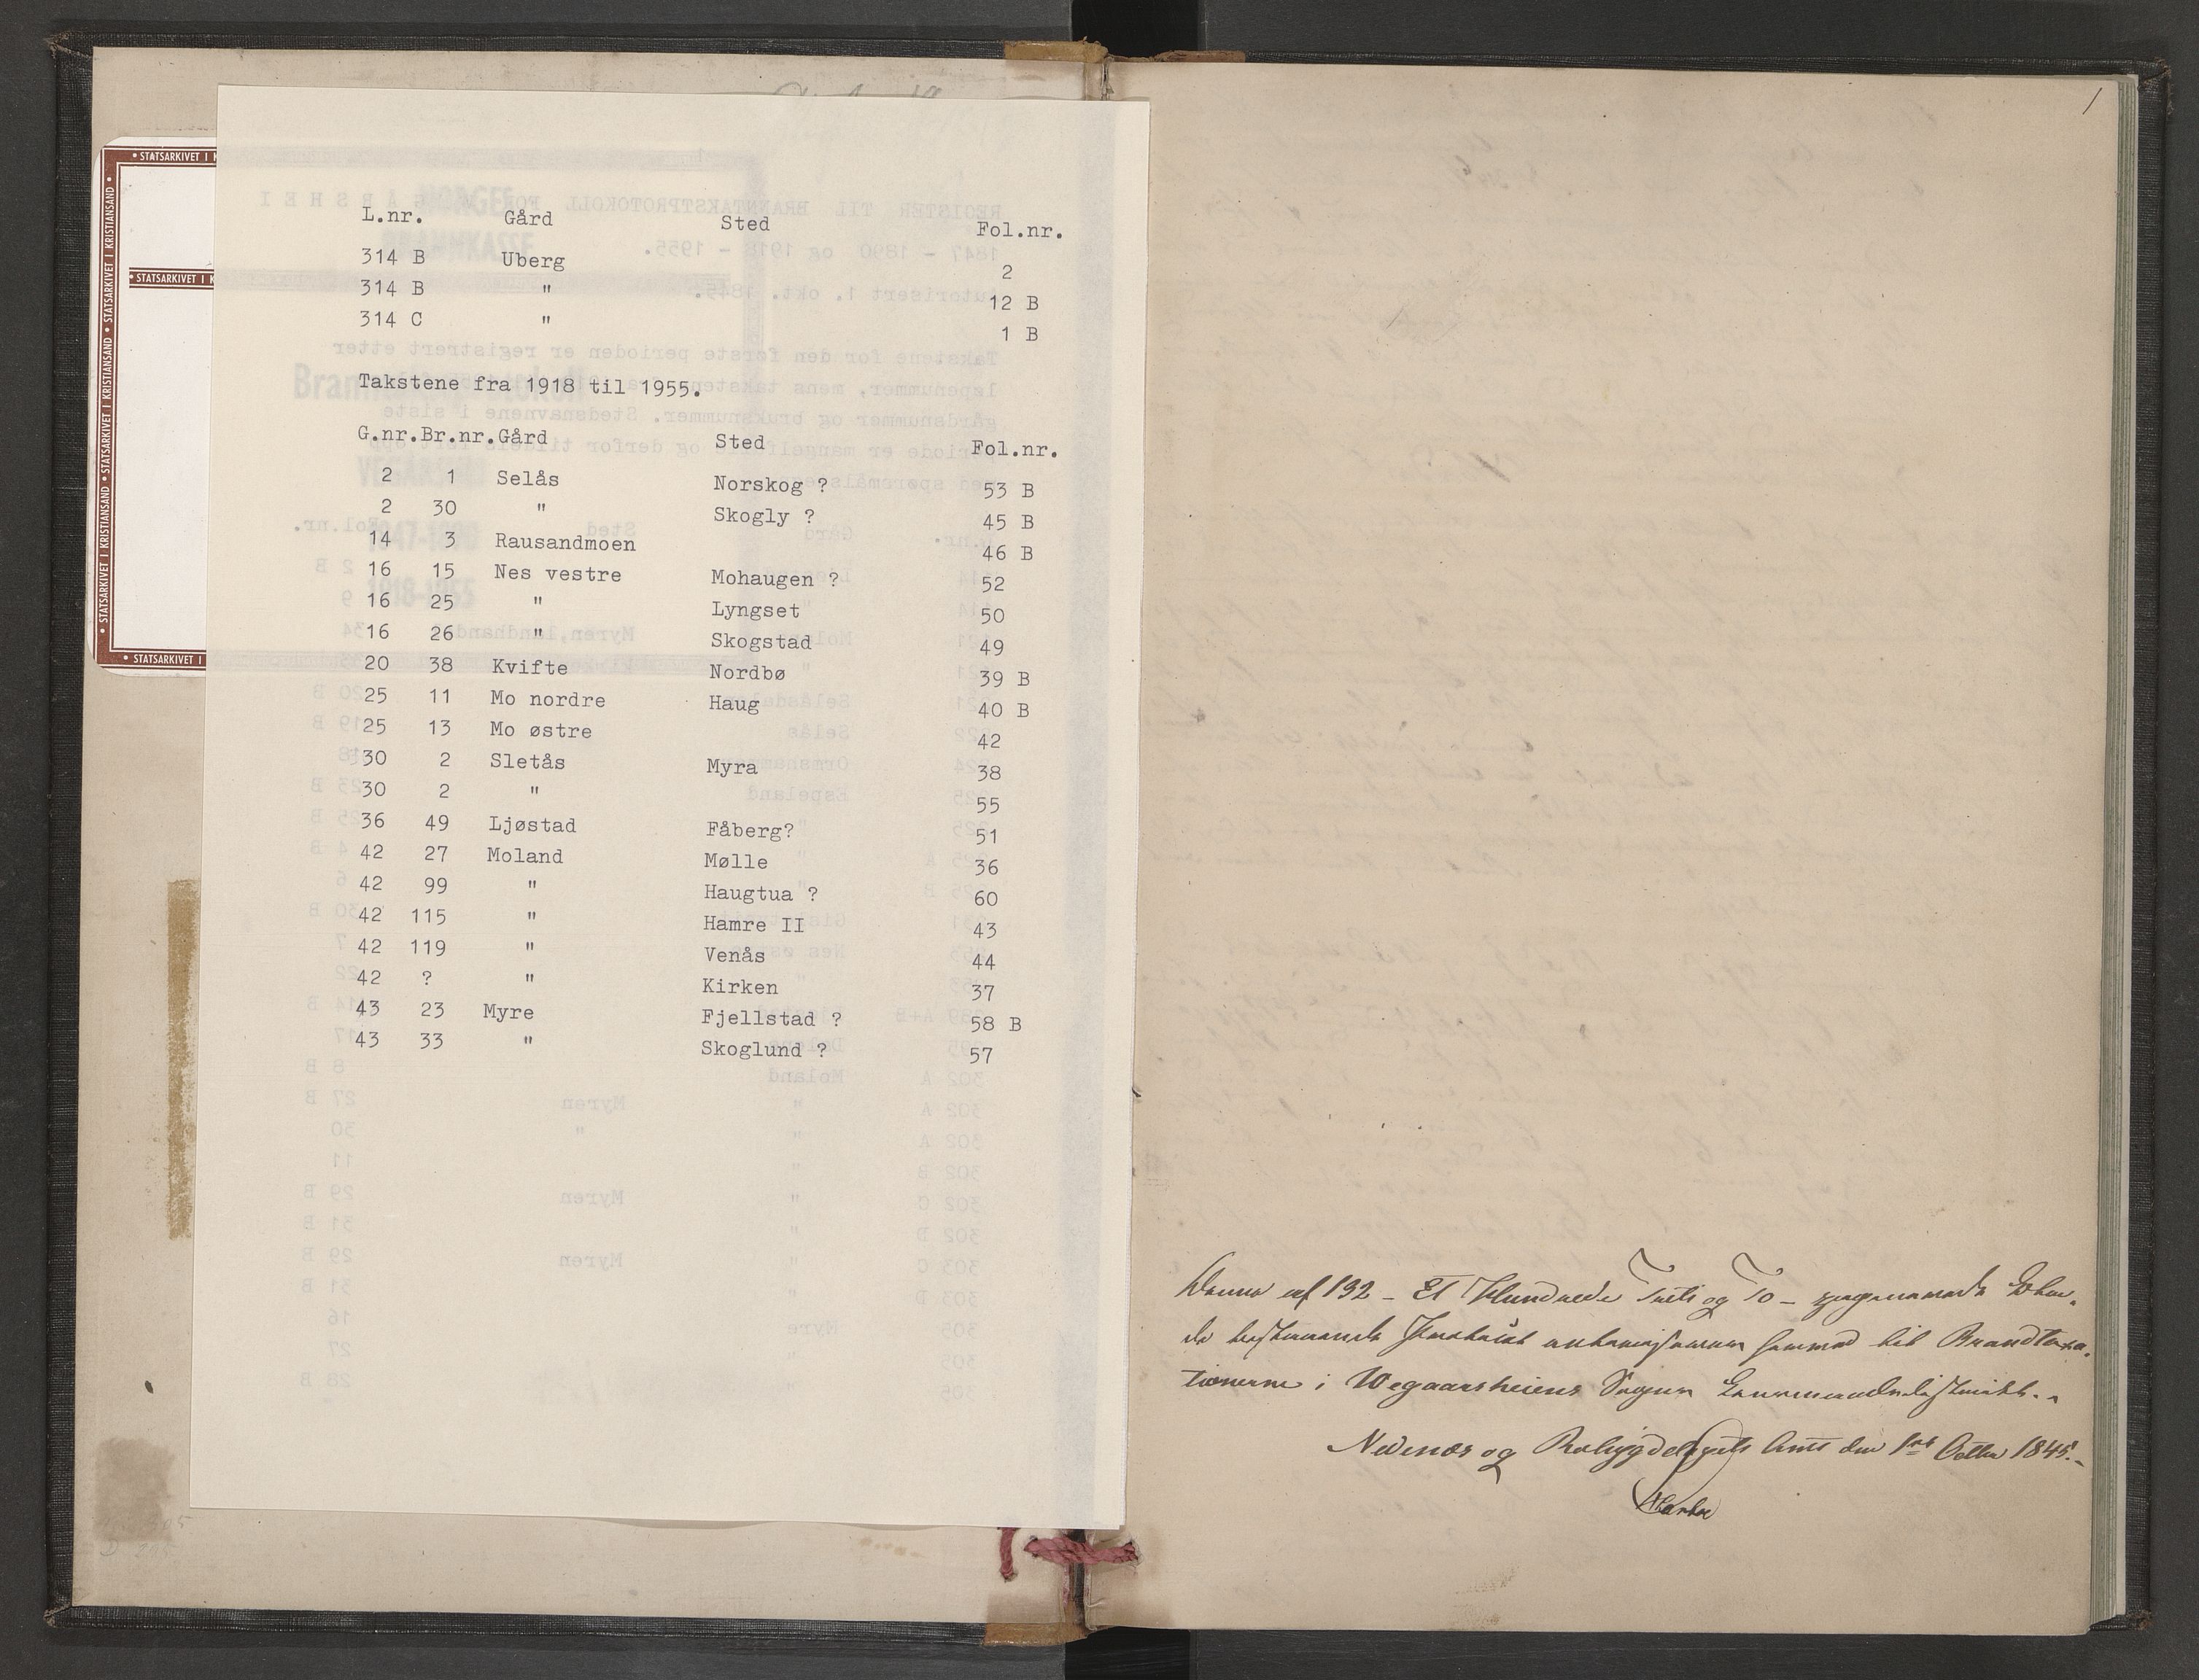 • STATSARKIVET I K
• STATSARKIVET I KRISTIANSAND • STATSARKIVET I KRISTIANSAND • STATSARKIVET I KRISTIANSAND •
• STATSARKIVET I K
• STATSARKIVET I
L.nr. Gård Sted Fol.nr.
314 B Uberg 2
314 B " 12 B
314 C " 1 B
Takstene fra 1918 til 1955.
G.nr.Br.nr.Gård Sted Fol.nr.
2 1 Selås Norskog ? 53 B
2 30 " Skogly ? 45 B
14 3 Rausandmoen 46 B
16 15 Nes vestre Mohaugen ? 52
16 25 " Lyngset 50
16 26 " Skogstad 49
20 38 Kvifte Nordbø 39 B
25 11 Mo nordre Haug 40 B
25 13 Mo østre 42
30 2 Sletås Myra 38
30 2 " 55
36 49 Ljøstad Fåberg? 51
42 27 Moland Mølle 36
42 99 " Haugtua ? 60
42 115 " Hamre II 43
42 119 " Venås 44
42 ? " Kirken 37
43 23 Myre Fjellstad ? 58 B
43 33 " Skoglund ? 57
1
Denne af 132 - Et Hundrede Treti og To -
bestaaende Protocol autoriseres herved til Brandtaxa-
tionerne i Wegaarsheiens Sogns Lensmandsdistrikt.
Nedenæs og Robygdelagets Amt den 1ste Octbr 1845.